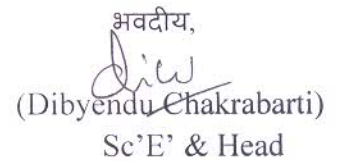 भवदीय,
(Dibyendu Chakrabarti)
Sc'E' & Head